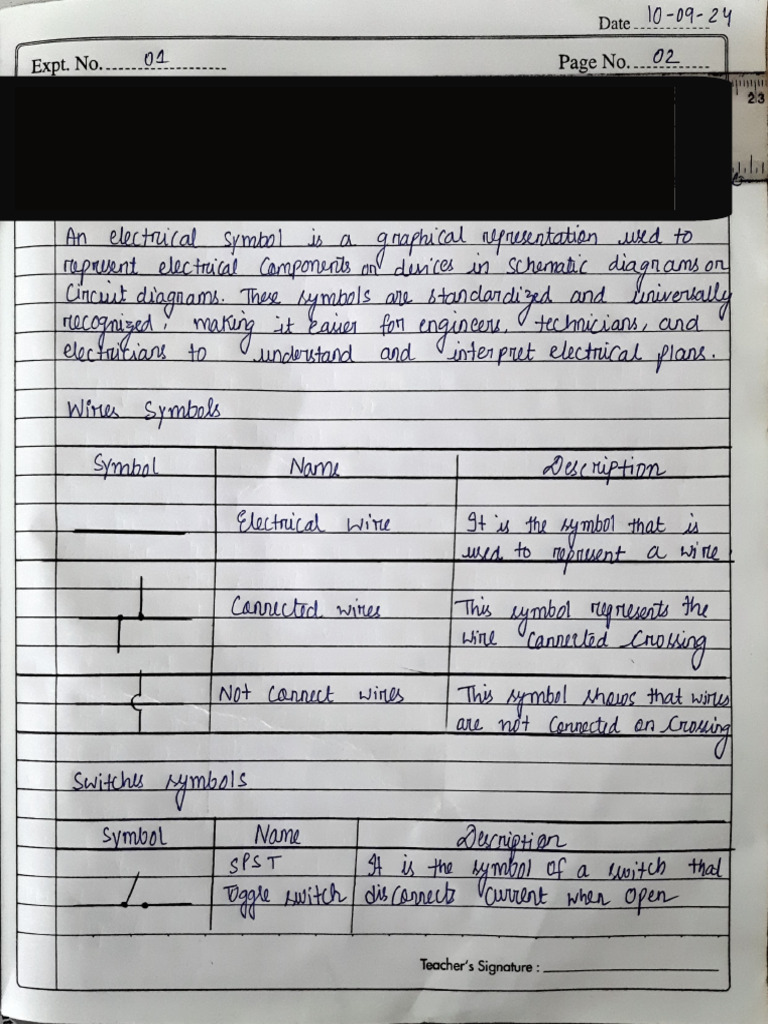 Date 10-09-24
Expt. No. 01
Page No. 02
23
An electrical symbol is a graphical representation used to
represent electrical components or devices in schematic diagrams or
Circuit diagrams. These symbols are standardized and universally
recognized, making it easier for engineers, technicians, and
electritians to understand and interpret electrical plans.
Wires Symbols
Symbol Name Description
Electrical wire It is the symbol that is
used to represent a wire.
Connected wires This symbol represents the
wire connected crossing
Not connect wires This symbol shows that wires
are not connected on crossing
Switches symbols
Symbol Name Description
SPST It is the symbol of a switch that
Toggle switch disconnects current when open
Teacher's Signature :